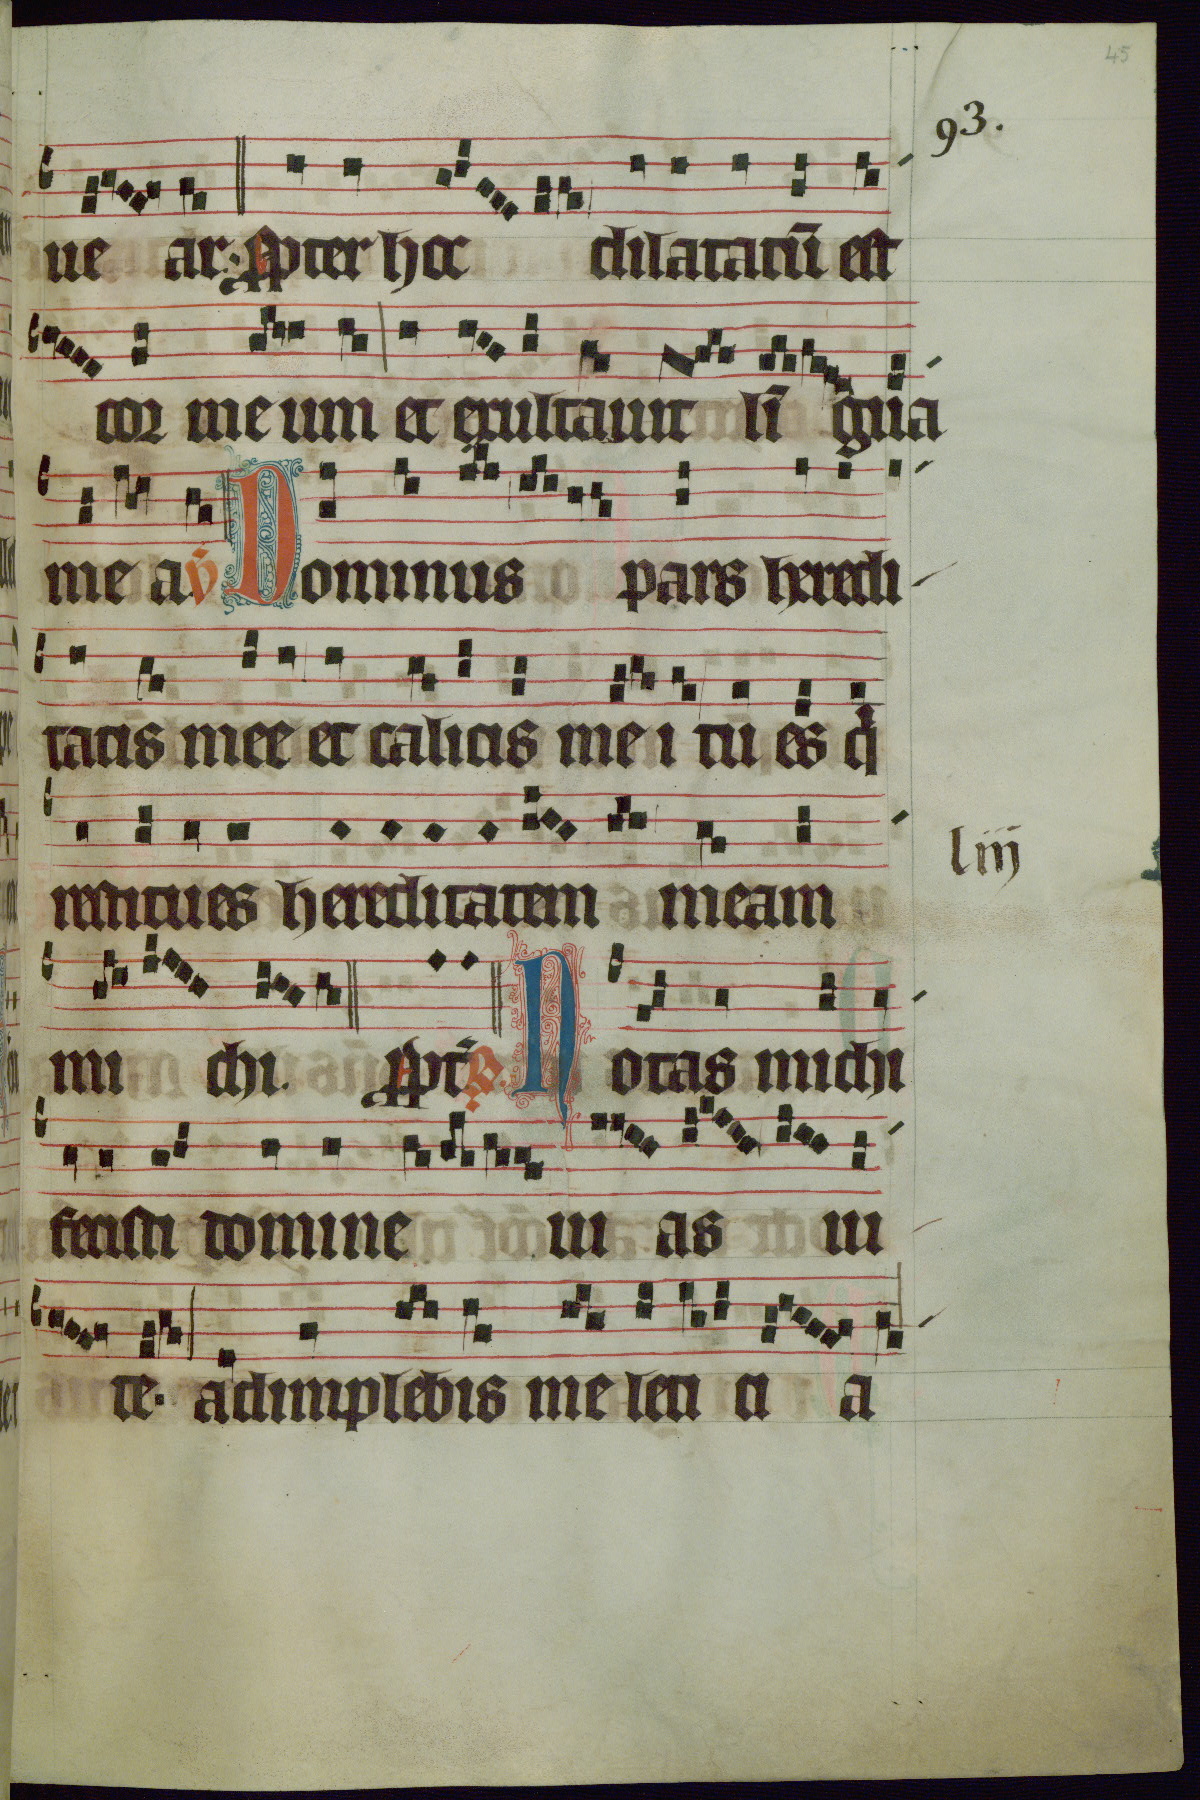 45
93.
ue ar. ꝓpter hoc dilatatū est
cor me um et exultauit lī gua
me a ℣ Dominus pars heredi
tatis mee et calicis me i tu es q̇
restitues hereditatem meam
liij
mi chi. ꝓpt̄ ℟. Notas michi
fecisti domine ui as ui
te. adimplebis me leti ci a